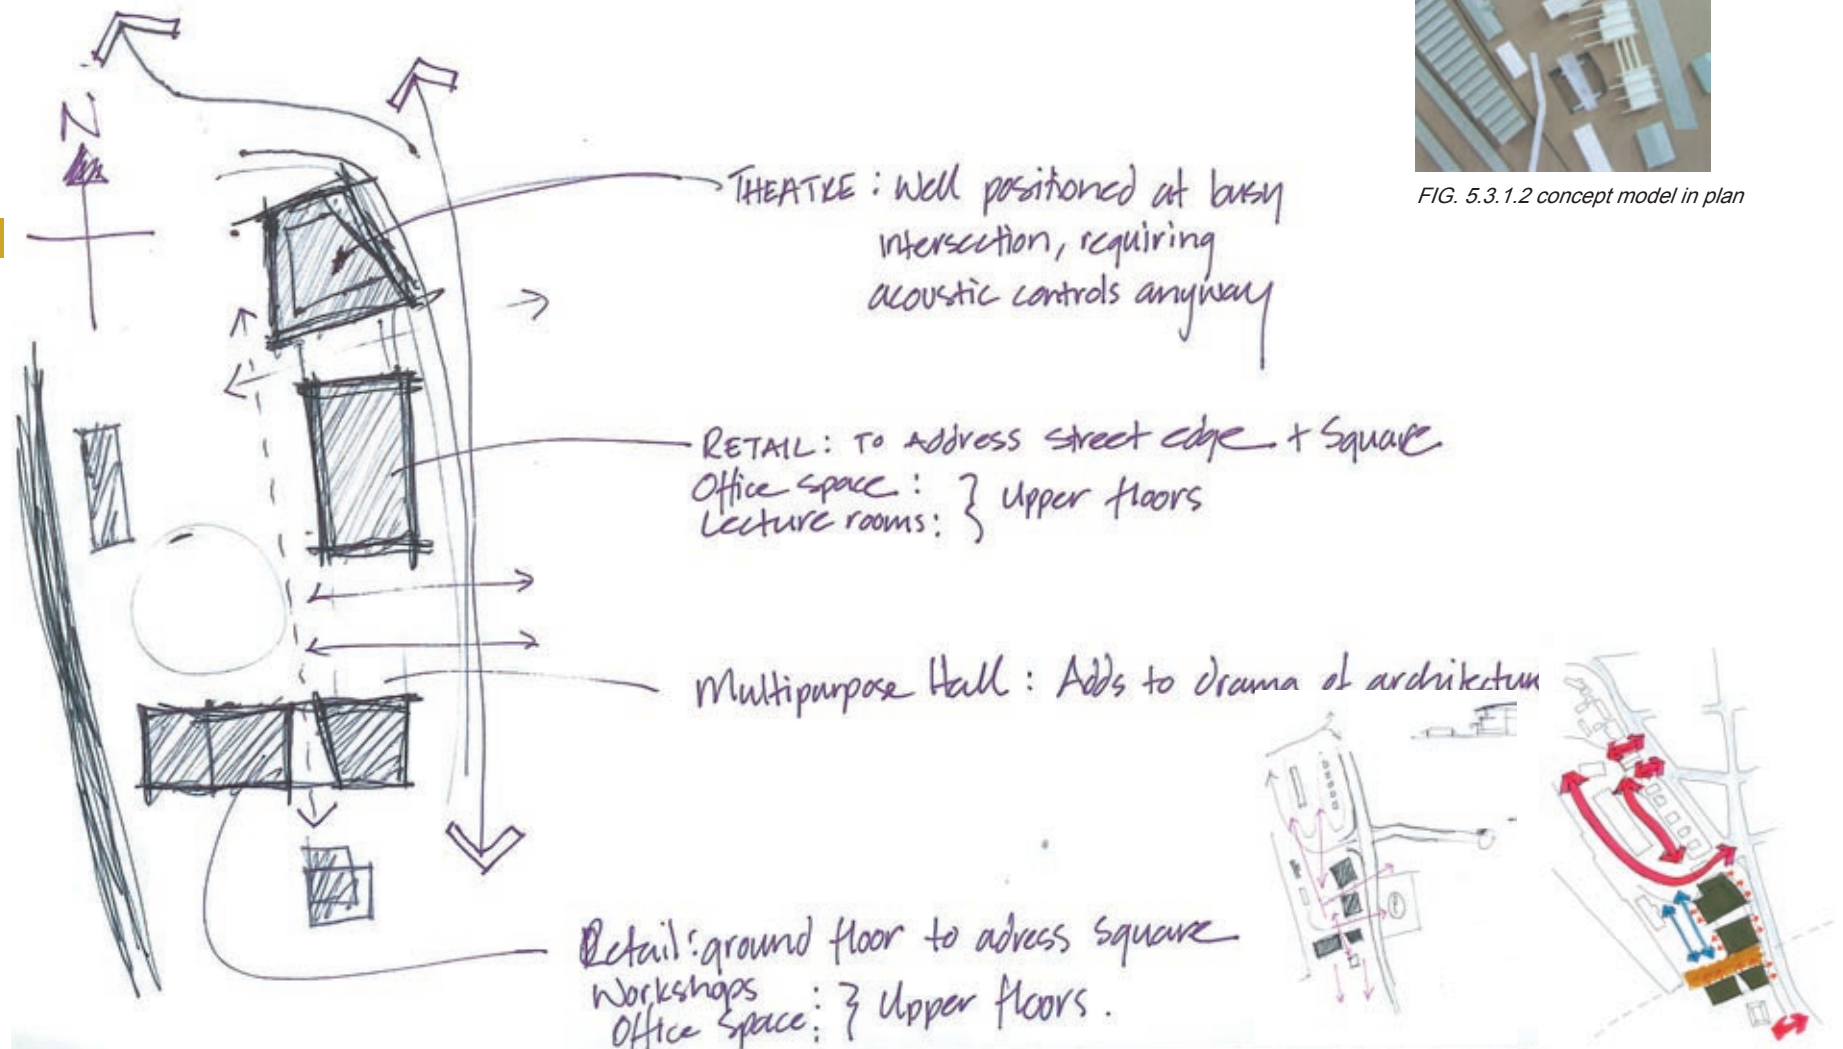 N
FIG. 5.3.1.2 concept model in plan
THEATRE: Well positioned at busy
intersection, requiring
acoustic controls anyway
RETAIL: To Address street edge + Square
Office space: } Upper floors
Lecture rooms:
Multipurpose Hall: Adds to drama of architectur
Retail: ground floor to adress Square
Workshops : } Upper floors.
Office Space: